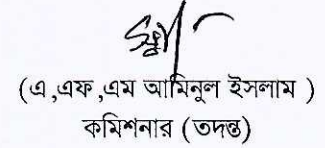 (এ ,এফ ,এম আমিনুল ইসলাম )
কমিশনার (তদন্ত)